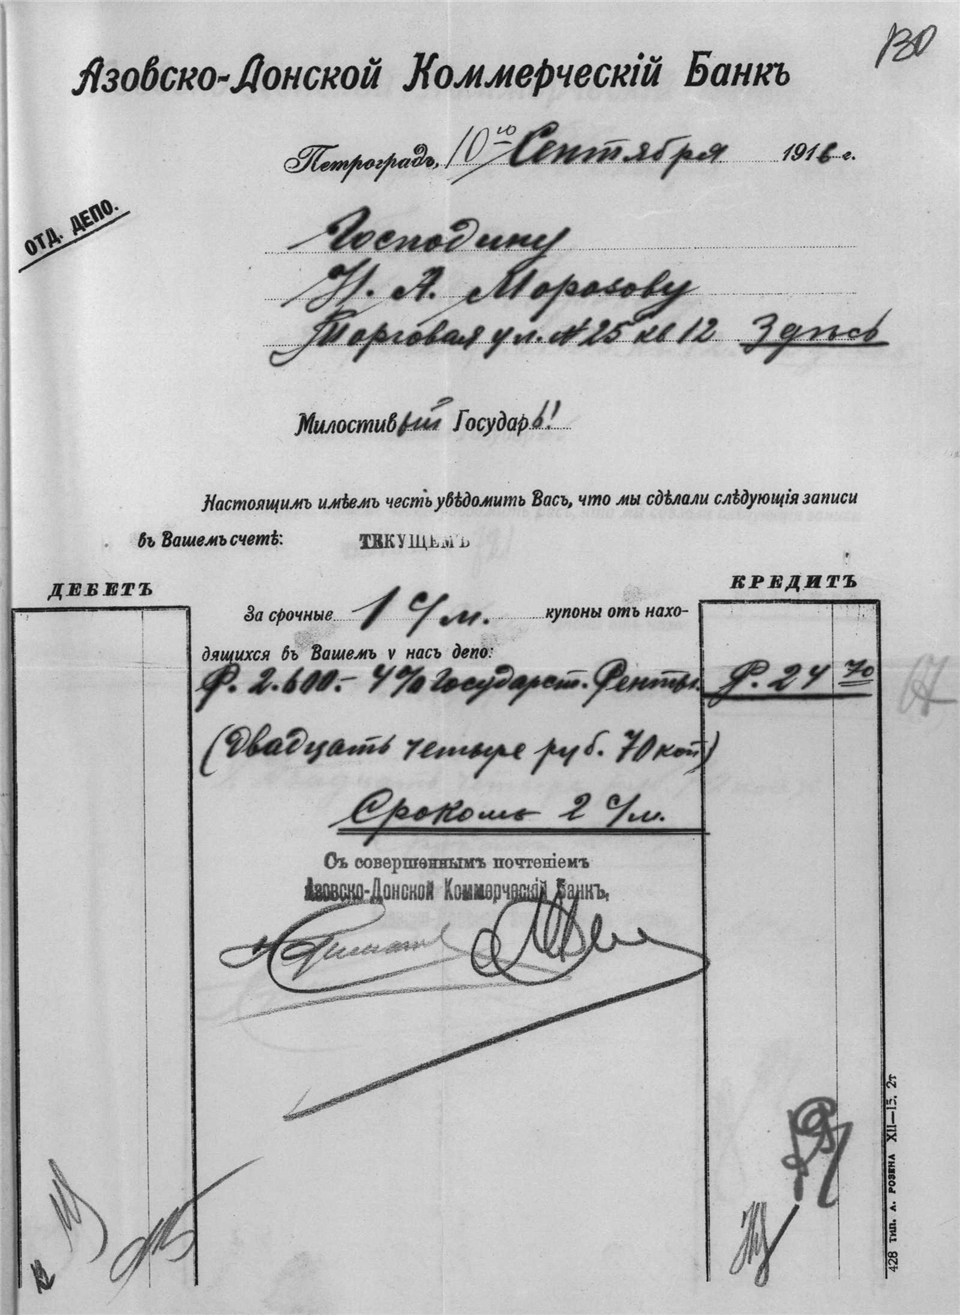 130
Азовско-Донской Коммерческій Банкъ
Петроградъ, 10го Сентября 1916 г.
ОТД. ДЕПО.
Господину
Н. А. Морозову
Торговая ул. N 25 кв 12 Здѣсь
Милостивый Государь!
Настоящимъ имѣемъ честь увѣдомить Васъ, что мы сдѣлали слѣдующія записи
въ Вашемъ счетѣ: ТЕКУЩЕМЪ
ДЕБЕТЪ
КРЕДИТЪ
За срочные 1 с/м. купоны отъ нахо-
дящихся въ Вашем у насъ депо:
Р. 2.600.- 4% Государст. Ренты. Р. 24 70
(Двадцать четыре руб. 70 коп)
Срокомъ 2 с/м.
Съ совершеннымъ почтеніемъ
Азовско-Донской Коммерческій Банкъ,
428 ТИП. А. РОЗЕНА XII—15. 2т